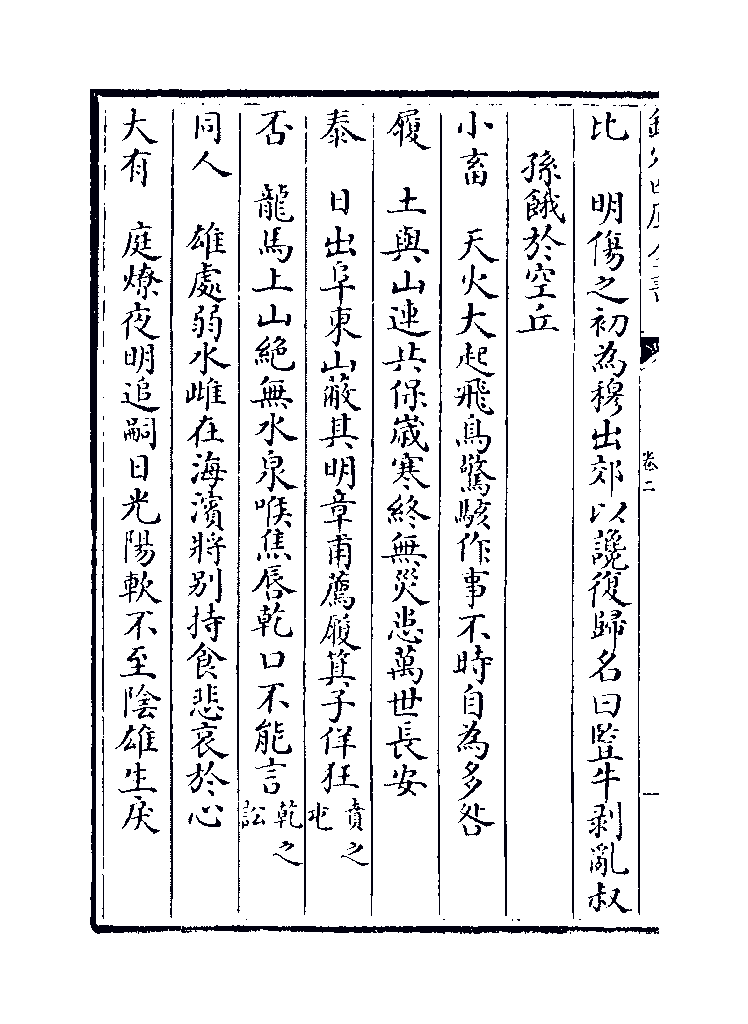 欽定四庫全書
卷二
比　明傷之初為穆出郊以讒復歸名曰豎牛剥亂叔
孫餓於空丘
小畜　天火大起飛鳥驚駭作事不時自為多咎
履　土與山連共保歳寒終無災患萬世長安
泰　日出阜東山蔽其明章甫薦履箕子佯狂賁之屯
否　龍馬上山絶無水泉喉焦唇乾口不能言乾之訟
同人　雄處弱水雌在海濱將别持食悲哀於心
大有　庭燎夜明追嗣日光陽軟不至陰雄生戾